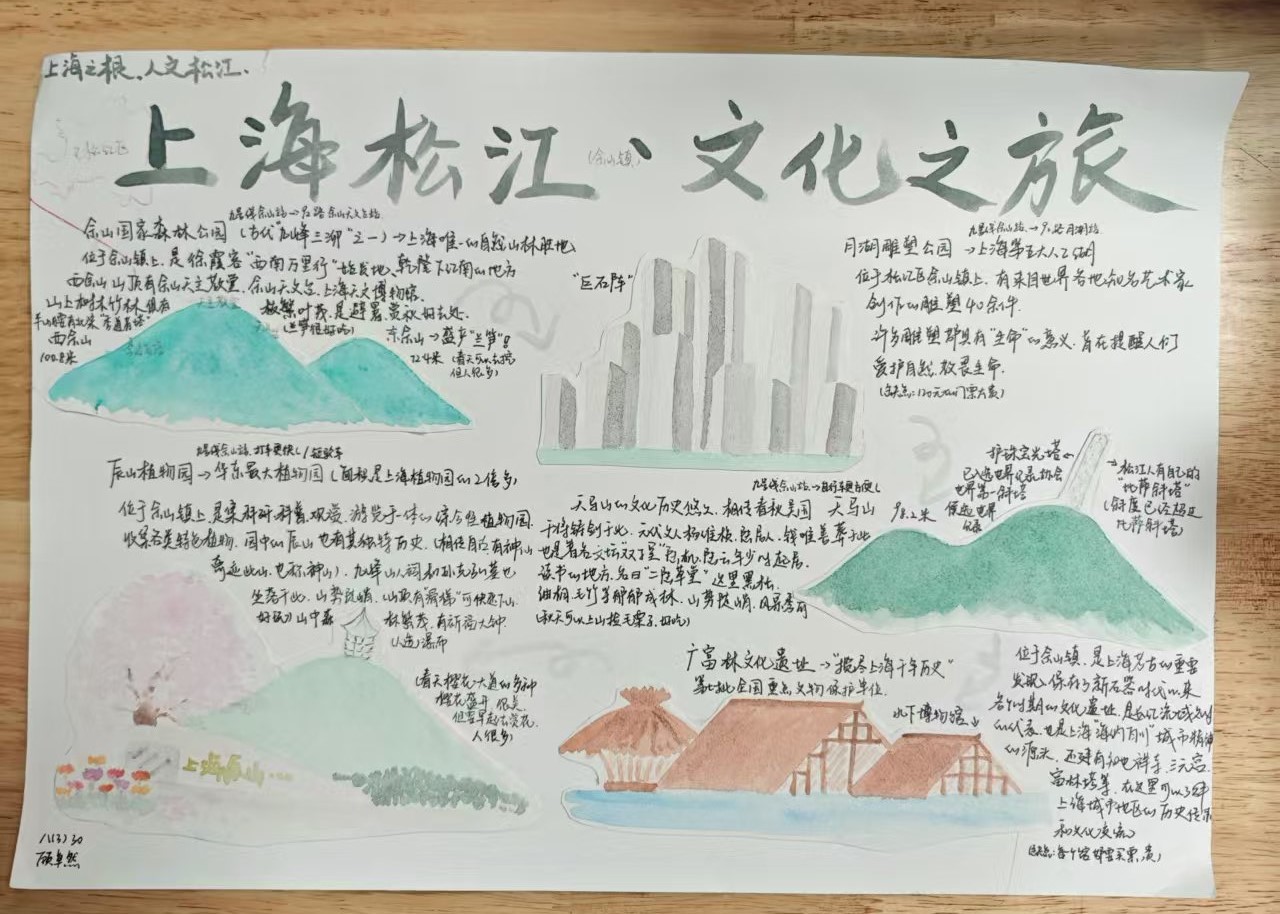 上海之根、人文松江、
上海松江、文化之旅
(佘山镇)
九号线佘山站→92路佘山天文台站
佘山国家森林公园 (古代"九峰三泖"之一)→上海唯一的自然山林胜地
位于佘山镇上,是徐霞客"西南万里行"始发地、乾隆下江南的地方
西佘山山顶有佘山天主教堂、佘山天文台、上海天文博物馆
山上树木竹林很有
枝繁叶茂,是避暑、赏秋好去处
(兰笋很好吃)
西佘山
100.8米
东佘山→盛产"兰笋"!
72.4米 (春天可以去挖
但人很多)
"巨石阵"
月湖雕塑公园 →上海第五大人工湖
位于松江区佘山镇上,有来自世界各地知名艺术家
创作的雕塑40余件
许多雕塑都具有"生命"的意义,旨在提醒人们
爱护自然、敬畏生命
(缺点:120元的门票太贵)
九号线佘山站、打车更快!
辰山植物园→华东最大植物园(面积是上海植物园的2倍多)
位于佘山镇上,是集科研、科普、观赏、游览于一体的综合性植物园
收集各类特色植物,园中的辰山也有其独特历史,(相传自古有神仙
离近此山,也称神山),九峰山人词和孙克弘墓也
坐落于此,山势
山中森林繁茂,有祈福大钟
人造瀑布
(春天樱花大道的多种
樱花盛开 很美
但要早起去赏花
人很多)
上海辰山
天马山的文化历史悠久,相传春秋吴国
干将铸剑于此,元代文人杨维桢、陆居仁、钱惟善葬于此
也是著名文坛"双丁星"陆机、陆云年少时起居、
读书的地方,名曰"二陆草堂"这里黑松、
油桐、毛竹等郁郁成林,山势陡峭,风景秀丽
(秋天可以上山捡毛栗子,好吃)
天马山
98.2米
护珠宝光塔←
已入选世界纪录协会
世界第一斜塔
候选世界
纪录
→松江人有自己的
"比萨斜塔"
(斜度已经超过
比萨斜塔)
广富林文化遗址→"揽尽上海千年历史"
第七批全国重点文物保护单位
水下博物馆
位于佘山镇,是上海考古的重要
发现、保存了新石器时代以来
各个时期的文化遗址,是松江流域文明
的代表,也是上海"海纳百川"城市精神
的源头,还建有知也禅寺、三元宫、
富林塔等,在这里可以了解
上海城市地区的历史传承
和文化演变
(缺点:各个馆都要买票,贵)
八(3) 30
顾卓然